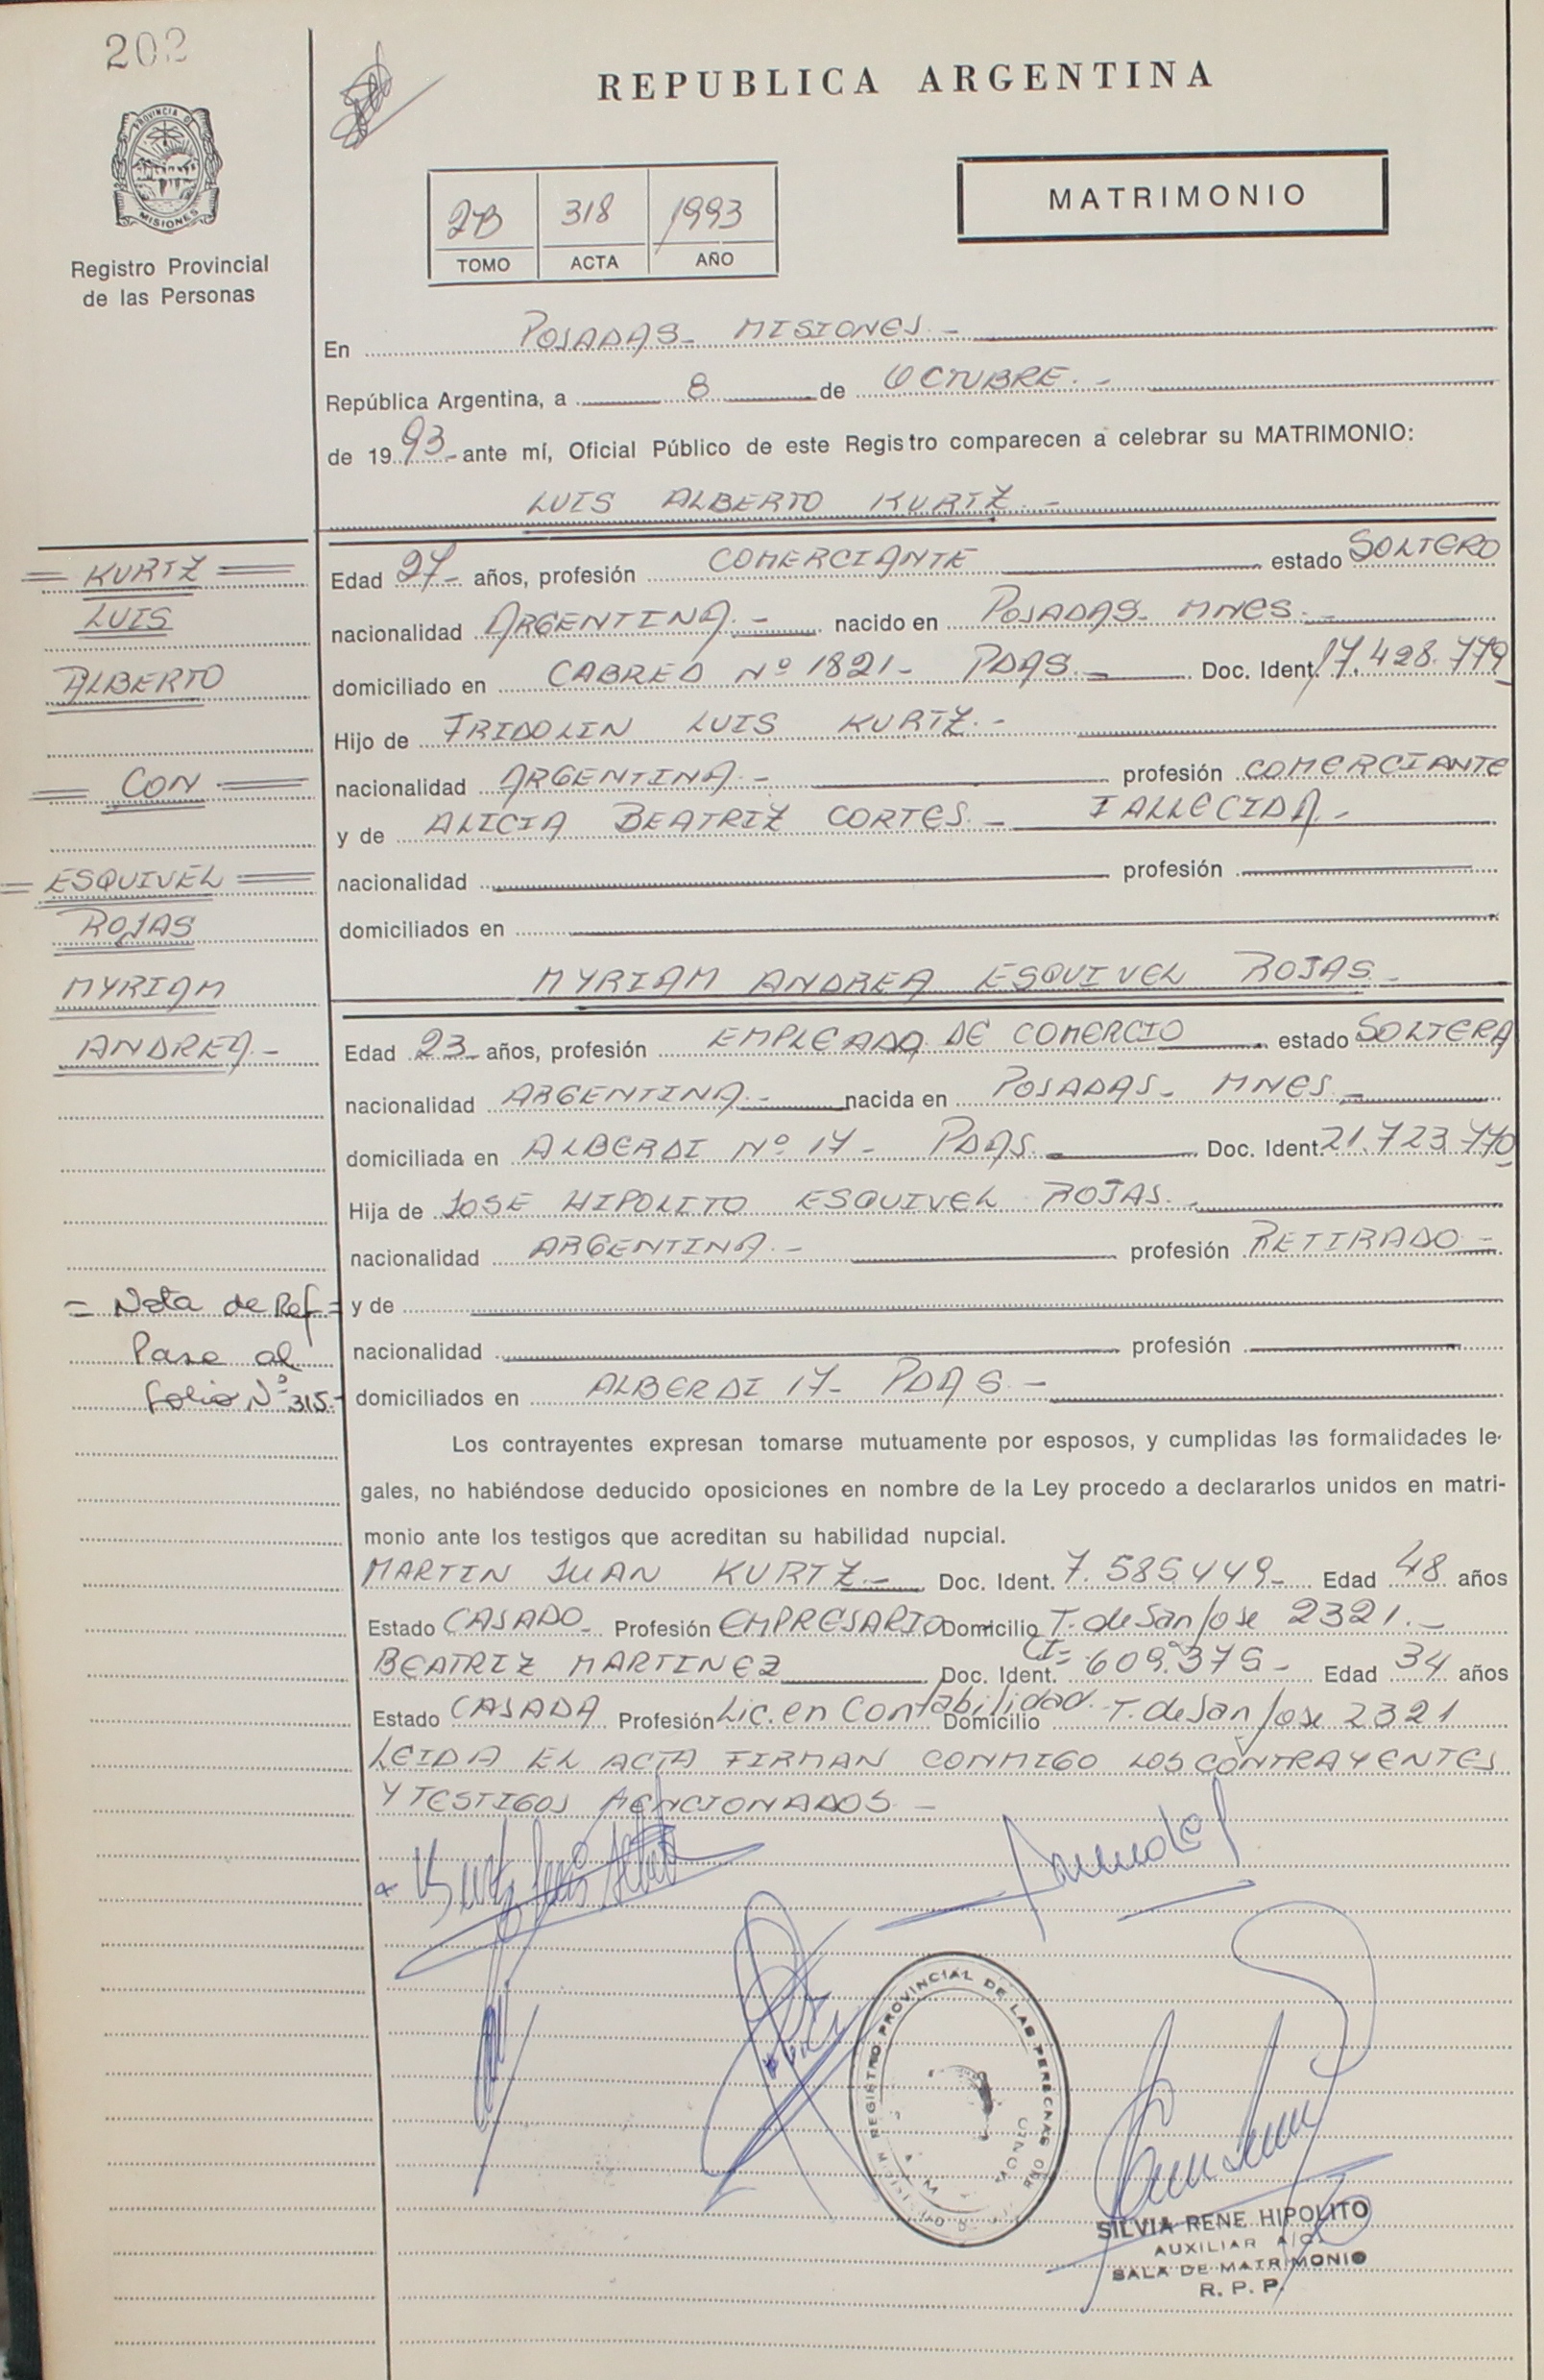 202
PROVINCIA DE
MISIONES
Registro Provincial
de las Personas
REPUBLICA ARGENTINA
2B 318 1993
TOMO ACTA AÑO
MATRIMONIO
En POSADAS- MISIONES.-
República Argentina, a 8 de OCTUBRE.-
de 1993- ante mí, Oficial Público de este Registro comparecen a celebrar su MATRIMONIO:
LUIS ALBERTO KURTZ.-
= KURTZ =
LUIS
ALBERTO
= CON =
= ESQUIVEL =
ROJAS
MYRIAM
ANDREA.-
= Nota de Ref =
Pase al
folio Nº 315.-
Edad 27- años, profesión COMERCIANTE estado SOLTERO
nacionalidad ARGENTINA.- nacido en POSADAS- MNES.-
domiciliado en CABRED Nº 1821- PDAS.- Doc. Ident. 17.428.779
Hijo de FRIDOLIN LUIS KURTZ.-
nacionalidad ARGENTINA.- profesión COMERCIANTE
y de ALICIA BEATRIZ CORTES.- FALLECIDA.-
nacionalidad profesión
domiciliados en
MYRIAM ANDREA ESQUIVEL ROJAS-
Edad 23- años, profesión EMPLEADA DE COMERCIO estado SOLTERA
nacionalidad ARGENTINA.- nacida en POSADAS- MNES.-
domiciliada en ALBERDI Nº 17- PDAS.- Doc. Ident. 21.723.770
Hija de JOSE HIPOLITO ESQUIVEL ROJAS.-
nacionalidad ARGENTINA.- profesión RETIRADO-
y de
nacionalidad profesión
domiciliados en ALBERDI 17- PDAS.-
Los contrayentes expresan tomarse mutuamente por esposos, y cumplidas las formalidades le-
gales, no habiéndose deducido oposiciones en nombre de la Ley procedo a declararlos unidos en matri-
monio ante los testigos que acreditan su habilidad nupcial.
MARTIN JUAN KURTZ.- Doc. Ident. 7.585449- Edad 48 años
Estado CASADO- Profesión EMPRESARIO Domicilio T. de San Jose 2321.-
BEATRIZ MARTINEZ Doc. Ident. CI= 609.375- Edad 34 años
Estado CASADA Profesión Lic. en Contabilidad. Domicilio T. de San Jose 2321
LEIDA EL ACTA FIRMAN CONMIGO LOS CONTRAYENTES
Y TESTIGOS MENCIONADOS-
Kurtz Luis Alberto
REGISTRO PROVINCIAL DE LAS PERSONAS
SILVIA RENE HIPOLITO
AUXILIAR A/C.
SALA DE MATRIMONIO
R. P. P.